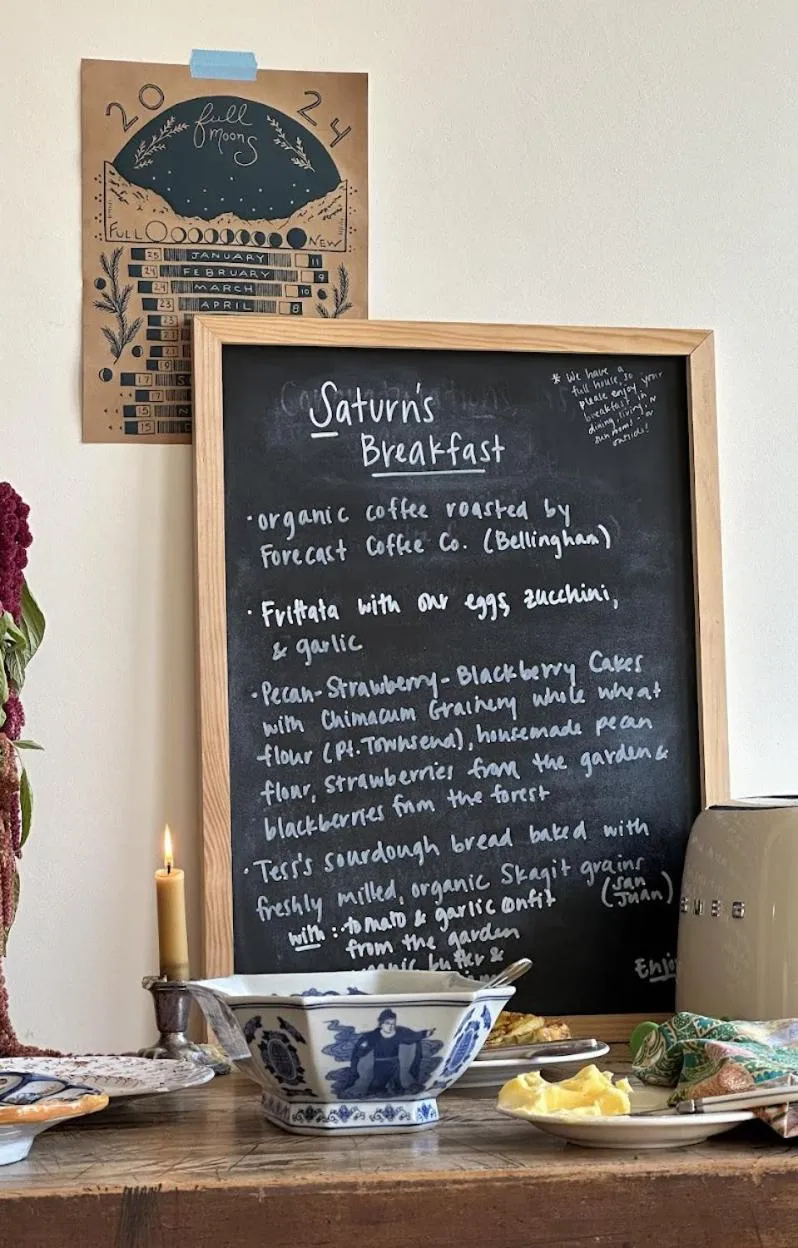 20 24
full
moons
FULL NEW
25 JANUARY 11
24 FEBRUARY 9
MARCH 10
23 APRIL 8
23
17 S
17
15 N
15
Saturn's
Breakfast
* We have a
full house, so
please enjoy your
breakfast in
dining, living, or
sunroom! or
outside!
• organic coffee roasted by
Forecast Coffee Co. (Bellingham)
• Frittata with our eggs, zucchini,
& garlic
• Pecan-Strawberry-Blackberry Cakes
with Chimacum Grainery whole wheat
flour (Pt. Townsend), housemade pecan
flour, strawberries from the garden &
blackberries from the forest
• Tess's sourdough bread baked with
freshly milled, organic Skagit grains
(San
Juan)
with: tomato & garlic confit
from the garden
organic butter &
Enjo
SMEG